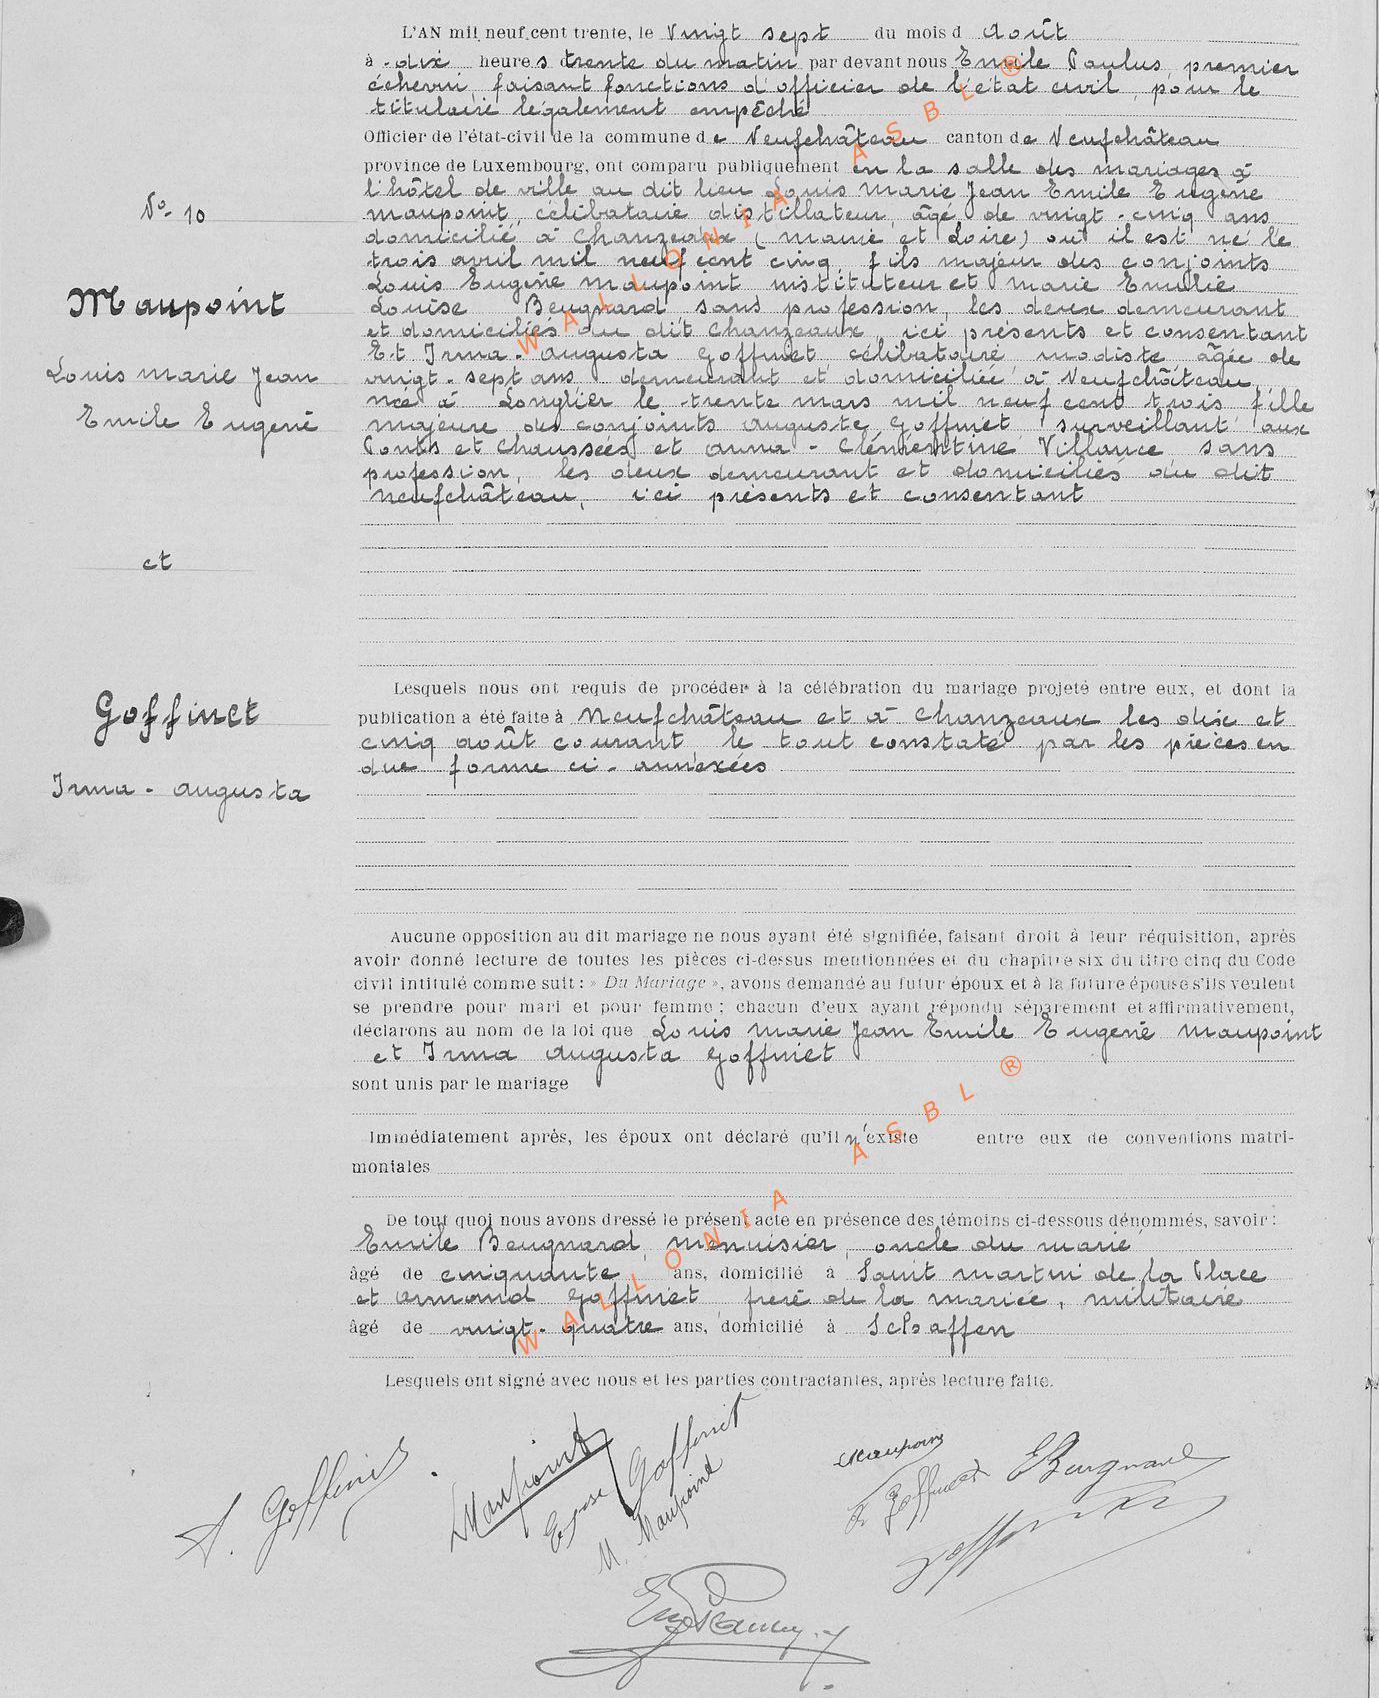 L'AN mil neuf cent trente, le Vingt sept du mois d Août
à dix heures trente du matin par devant nous Emile Paulus, premier
échevin, faisant fonctions d'officier de l'état civil, pour le
titulaire légalement empêché
Officier de l'état-civil de la commune de Neufchâteau canton de Neufchâteau
province de Luxembourg, ont comparu publiquement en la salle des mariages à
l'hôtel de ville au dit lieu Louis Marie Jean Emile Eugène
Maupoint, célibataire, distillateur, âgé de vingt-cinq ans
domicilié à Chanzeaux (Maine et Loire) où il est né le
trois avril mil neuf cent cinq, fils majeur des conjoints
Louis Eugène Maupoint instituteur et Marie Emilie
Louise Beugnard sans profession, les deux demeurant
et domiciliés au dit Chanzeaux ici présents et consentant
Et Irma-Augusta Goffinet, célibataire modiste âgée de
vingt-sept ans demeurant et domiciliée à Neufchâteau,
née à Longlier le trente mars mil neuf cent trois fille
majeure des conjoints Auguste Goffinet surveillant aux
Ponts et Chaussées et Anna-Clémentine Villance sans
profession, les deux demeurant et domiciliés au dit
Neufchâteau, ici présents et consentant
No 10
Maupoint
Louis Marie Jean
Emile Eugène
et
Goffinet
Irma-Augusta
Lesquels nous ont requis de procéder à la célébration du mariage projeté entre eux, et dont la
publication a été faite à Neufchâteau et à Chanzeaux les dix et
cinq août courant, le tout constaté par les pièces en
due forme ci-annexées
Aucune opposition au dit mariage ne nous ayant été signifiée, faisant droit à leur réquisition, après
avoir donné lecture de toutes les pièces ci-dessus mentionnées et du chapitre six du titre cinq du Code
civil intitulé comme suit : » Du Mariage », avons demandé au futur époux et à la future épouse s'ils veulent
se prendre pour mari et pour femme ; chacun d'eux ayant répondu séparément et affirmativement,
déclarons au nom de la loi que Louis Marie Jean Emile Eugène Maupoint
et Irma Augusta Goffinet
sont unis par le mariage
Immédiatement après, les époux ont déclaré qu'il n'existe entre eux de conventions matri-
moniales
De tout quoi nous avons dressé le présent acte en présence des témoins ci-dessous dénommés, savoir :
Emile Beugnard, menuisier, oncle du marié
âgé de cinquante ans, domicilié à Saint Martin de la Place
et Armand Goffinet, frère de la mariée, militaire
âgé de vingt-quatre ans, domicilié à Schaffen
Lesquels ont signé avec nous et les parties contractantes, après lecture faite.
A. Goffinet
Maupoint
Goffinet
M. Maupoint
Maupoint
Goffinet
E Beugnard
WALLONIA ASBL ®
WALLONIA ASBL ®